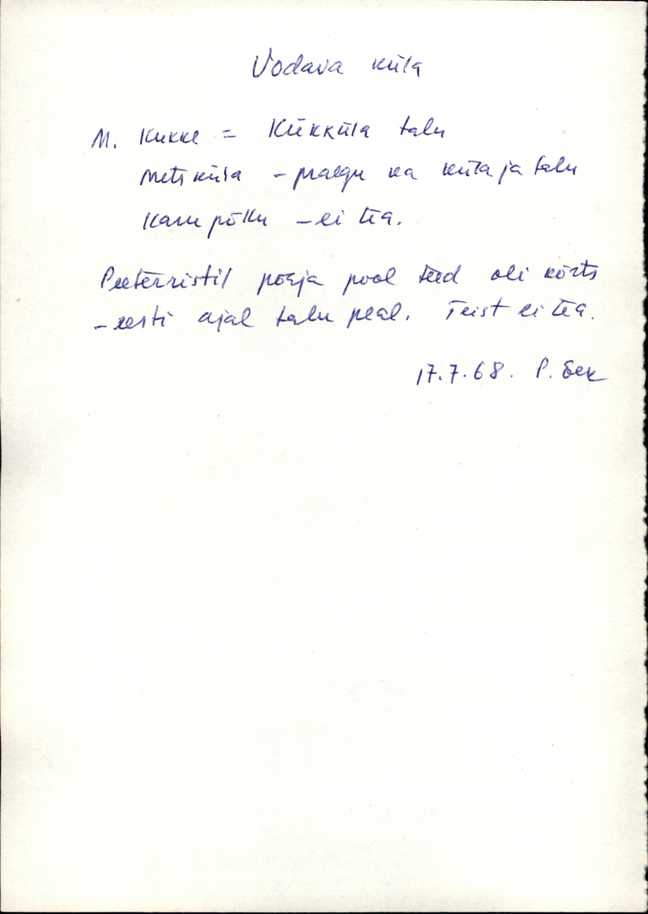 Vodava küla
M. Kukke = Kükküla talu
Metsküla - praegu ka küla ja talu
Karu põku - ei tea.
Peeterristil põhja pool teed oli kõrts
- eesti ajal talu peal. Teist ei tea.
17.7.68. P.